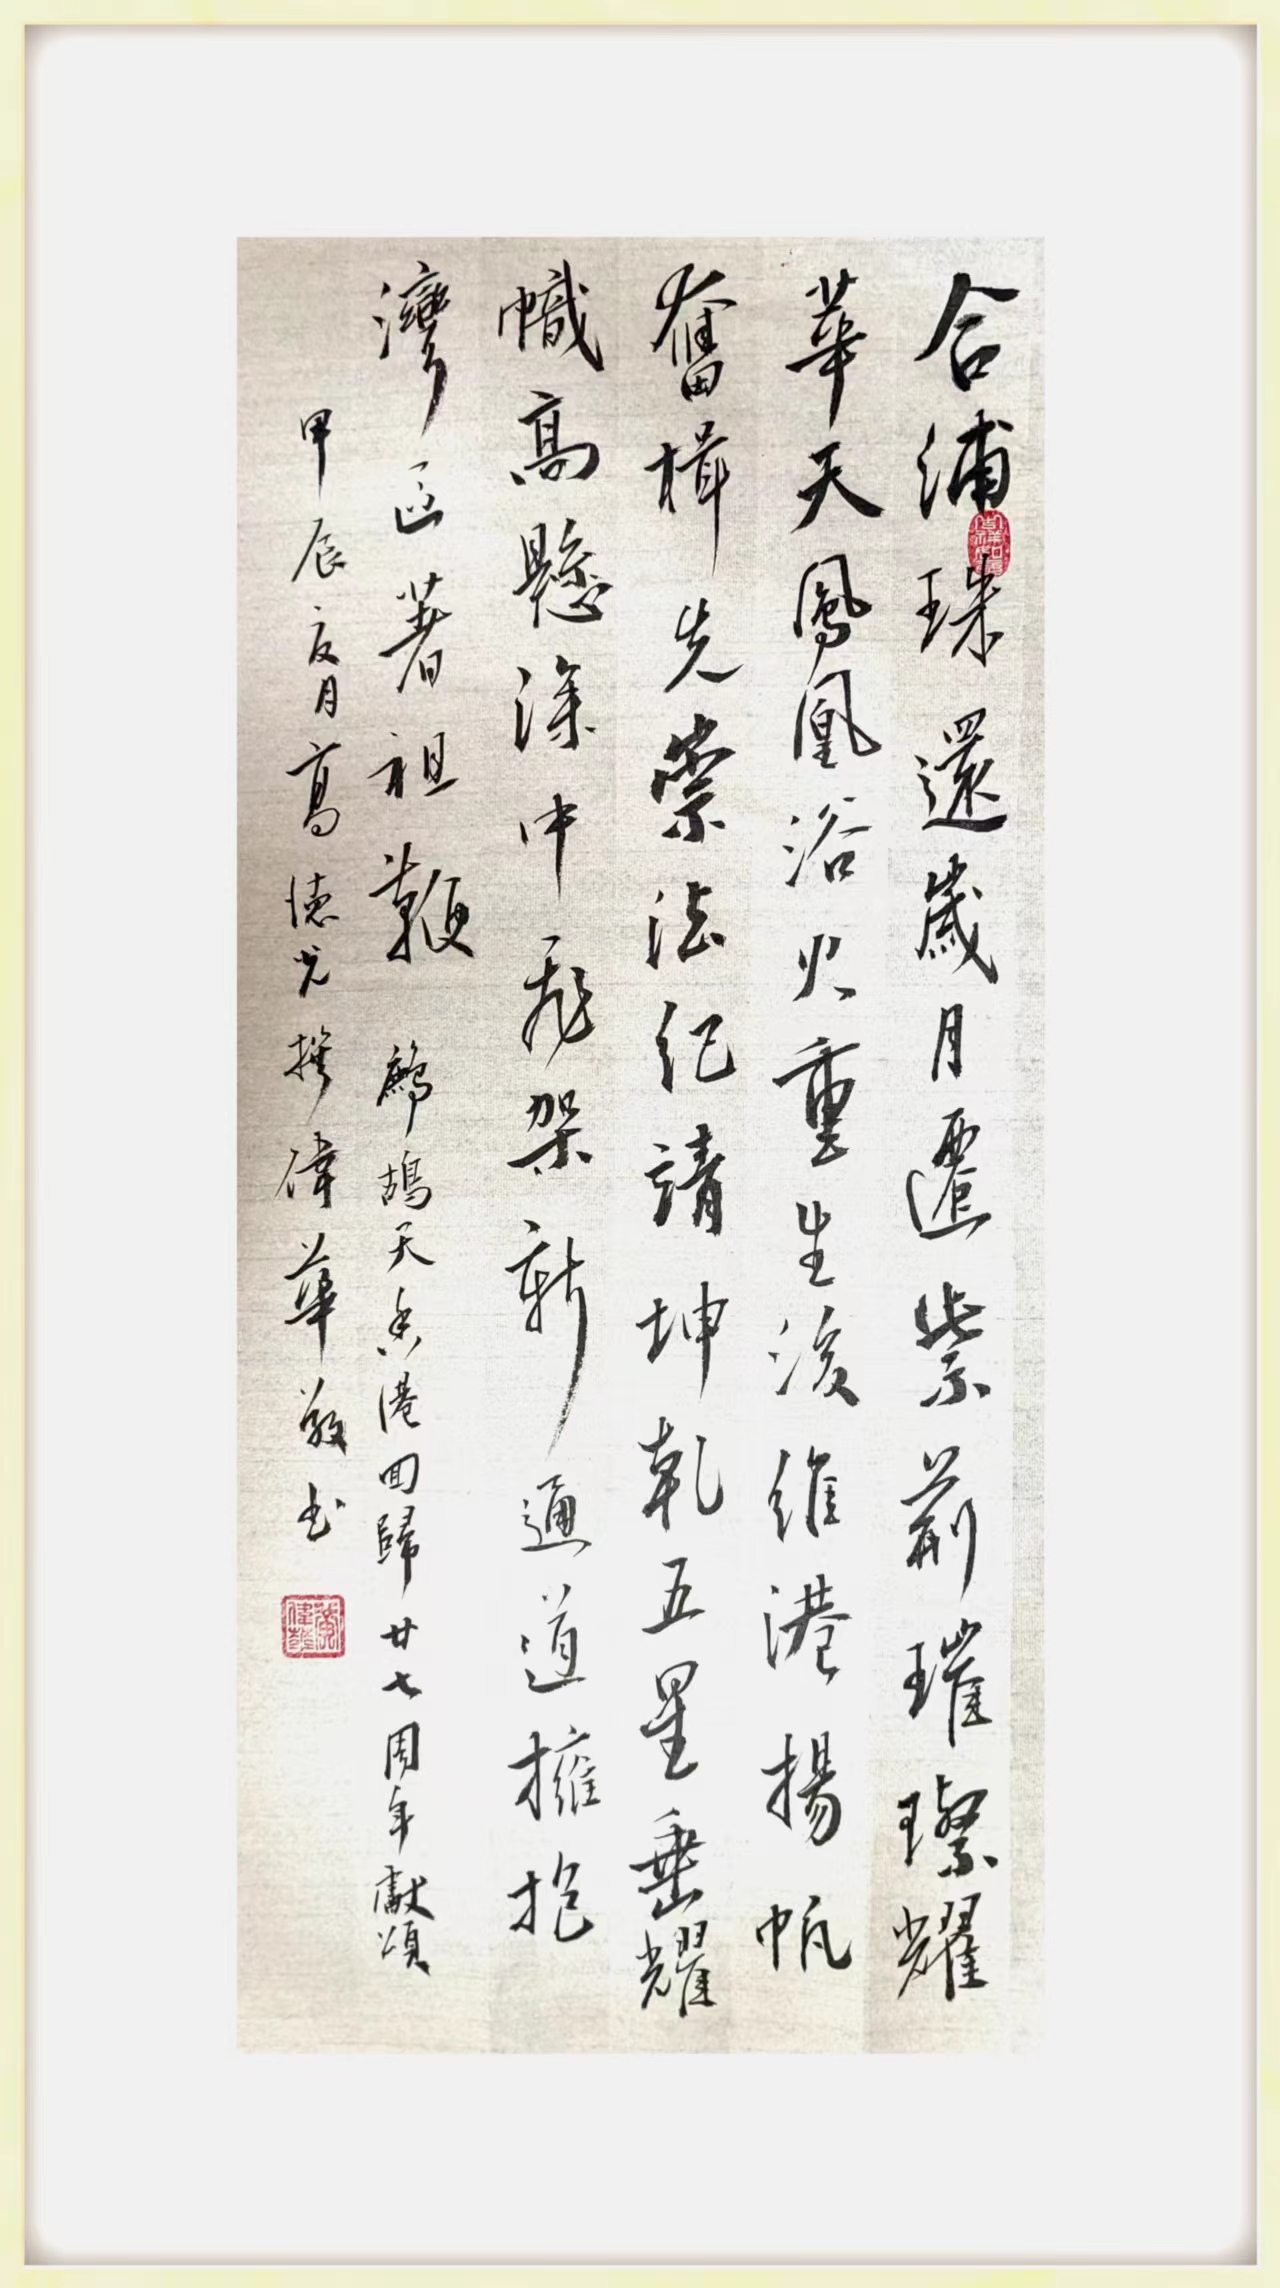 合浦珠還歲月遷紫荊璀璨耀
華天鳳凰浴火重生後維港揚帆
奮楫先崇法紀請坤乾五星垂耀
幟高懸深中飛架新通道擁抱
灣區著祖鞭 鷓鴣天香港回歸廿七周年獻頌
甲辰夏月高德光撰偉華敬书